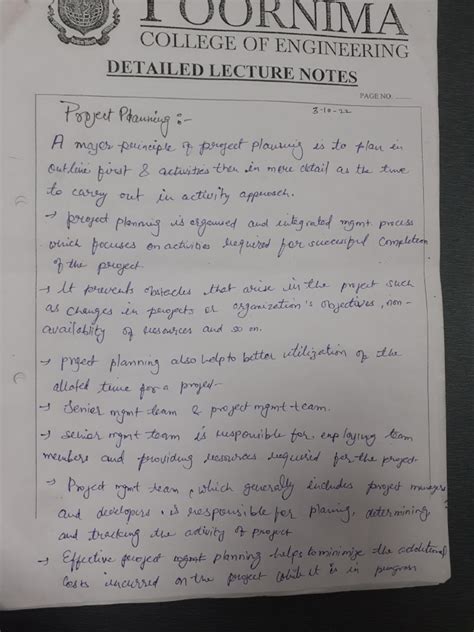 POORNIMA
COLLEGE OF ENGINEERING
DETAILED LECTURE NOTES
PAGE NO. ......
Project Planning :-
3-10-22
A major principle of project planning is to plan in
outline first & activities then in more detail as the time
to carry out in activity approach.
→ project planning is organised and integrated mgmt process
which focuses on activities required for successful completion
of the project.
→ It prevents obstacles that arise in the project such
as changes in projects or organization's objectives, non-
availability of resources and so on.
→ project planning also help to better utilization of the
alloted time for a project.
→ Senior mgmt team & project mgmt team.
→ Senior mgmt team is responsible for employing team
members and providing resources required for the project
→ Project mgmt team, which generally includes project managers
and developers, is responsible for planing, determining
and tracking the activity of project
→ Effective project mgmt planning helps to minimize the additional
costs incurred on the project while it is in progress